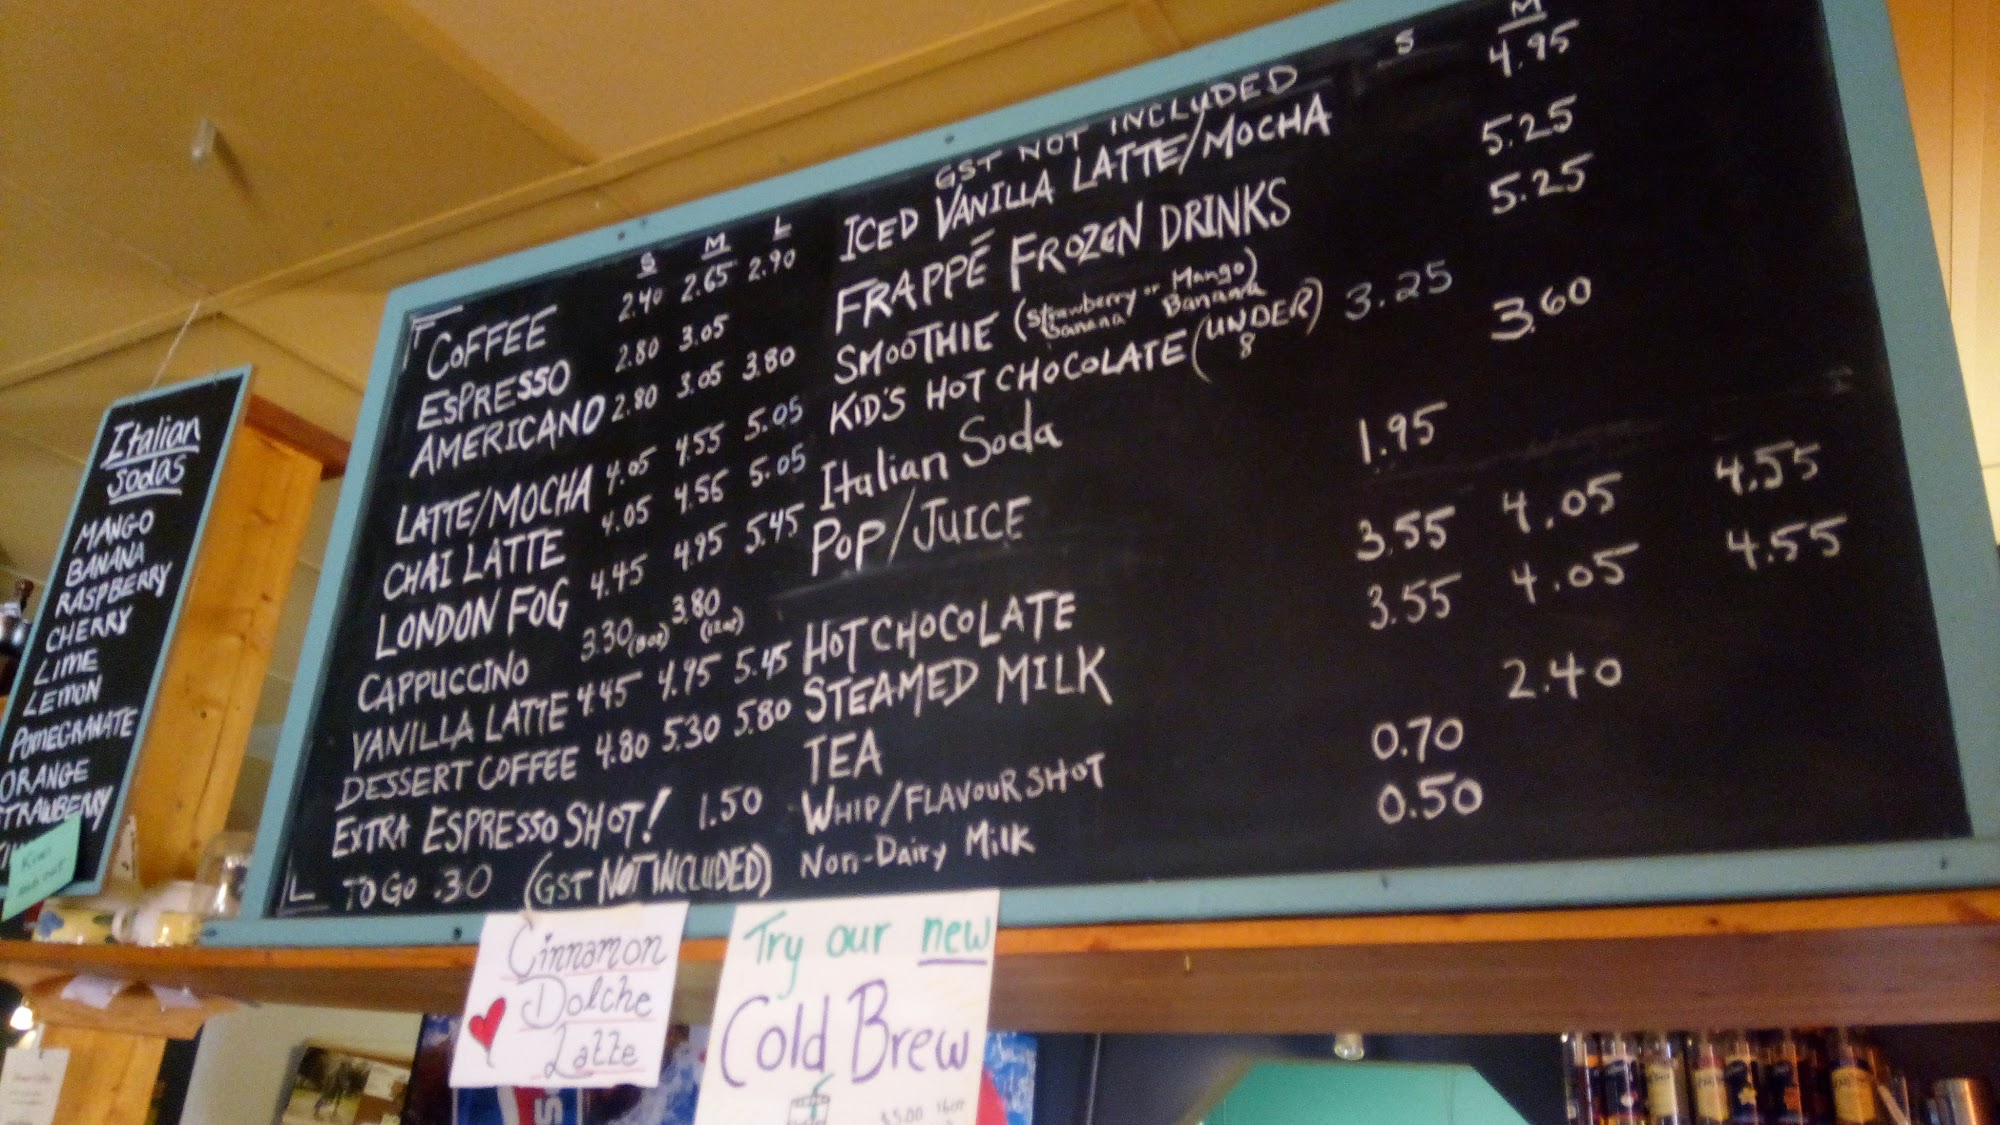 Italian
Sodas
MANGO
BANANA
RASPBERRY
CHERRY
LIME
LEMON
POMEGRANATE
ORANGE
STRAWBERRY
S M L
COFFEE 2.40 2.65 2.90
ESPRESSO 2.80 3.05
AMERICANO 2.80 3.05 3.80
LATTE/MOCHA 4.05 4.55 5.05
CHAI LATTE 4.05 4.55 5.05
LONDON FOG 4.45 4.95 5.45
CAPPUCCINO 3.30 (8oz) 3.80 (12oz)
VANILLA LATTE 4.45 4.95 5.45
DESSERT COFFEE 4.80 5.30 5.80
EXTRA ESPRESSO SHOT! 1.50
TO GO .30 (GST NOT INCLUDED)
S M
GST NOT INCLUDED
ICED VANILLA LATTE/MOCHA 4.95
FRAPPÉ FROZEN DRINKS 5.25
SMOOTHIE (Strawberry or Mango) 5.25
Banana Banana
KID'S HOT CHOCOLATE (UNDER) 3.25
8
Italian Soda 3.60
POP/JUICE 1.95
HOT CHOCOLATE 3.55 4.05 4.55
STEAMED MILK 3.55 4.05 4.55
TEA 2.40
WHIP/FLAVOUR SHOT 0.70
Non-Dairy Milk 0.50
Cinnamon
Dolche
Latte
Try our new
Cold Brew
$5.00 16oz